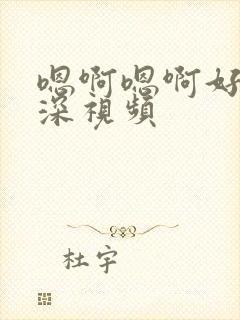 嗯啊嗯啊好
深視頻
杜宇